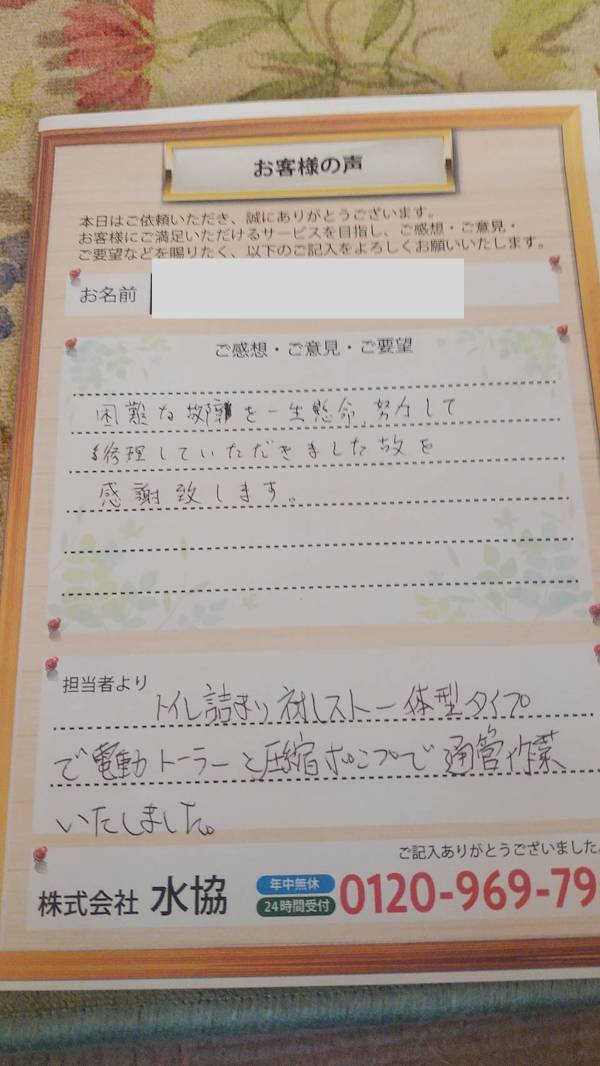 お客様の声
本日はご依頼いただき、誠にありがとうございます。
お客様にご満足いただけるサービスを目指し、ご感想・ご意見・
ご要望などを賜りたく、以下のご記入をよろしくお願いいたします。
お名前
ご感想・ご意見・ご要望
困難な故障を一生懸命努力して
修理していただきました故を
感謝致します。
担当者より
トイレ詰まり 一体型タイプ
で電動トーラーと圧縮ポンプで通管作業
いたしました。
ご記入ありがとうございました。
株式会社 水協 年中無休 24時間受付 0120-969-79